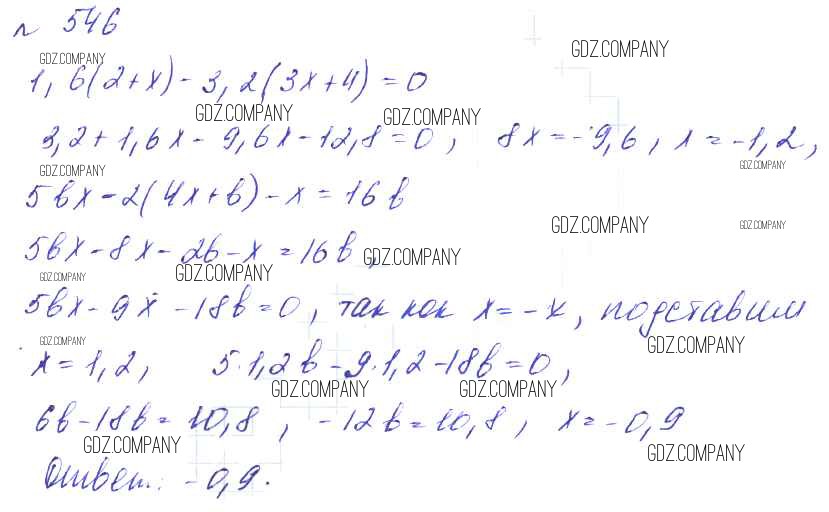 № 546
GDZ.COMPANY GDZ.COMPANY
1,6(2+x)-3,2(3x+4)=0
GDZ.COMPANY GDZ.COMPANY
3,2+1,6x-9,6x-12,8=0, 8x=-9,6, x=-1,2,
GDZ.COMPANY GDZ.COMPANY
5bx-2(4x+b)-x=16b
GDZ.COMPANY GDZ.COMPANY
5bx-8x-2b-x=16b,
GDZ.COMPANY
GDZ.COMPANY GDZ.COMPANY
5bx-9x-18b=0, так как x=-x, подставим
GDZ.COMPANY GDZ.COMPANY
x=1,2, 5·1,2b-9·1,2-18b=0,
GDZ.COMPANY GDZ.COMPANY
6b-18b=10,8, -12b=10,8, x=-0,9
GDZ.COMPANY GDZ.COMPANY
Ответ: -0,9.